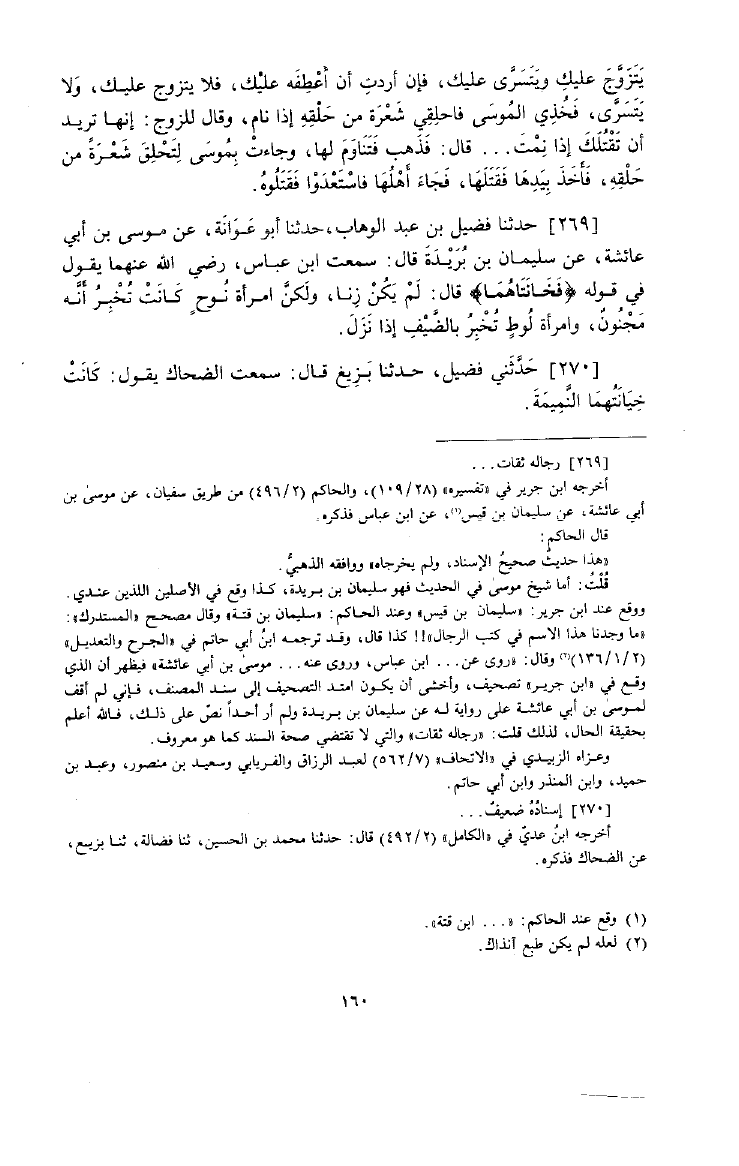 يَتَزَوَّجَ عليكِ ويَتَسَرَّى عليك، فإن أردتِ أن أَعْطِفَه عليْك، فلا يتزوج عليك، وَلا
يَتَسَرَّى، فَخُذِي المُوسَى فاحلِقِي شَعْرَة من حَلْقِهِ إذا نام، وقال للزوج: إنها تريد
أن تَقْتُلَكَ إذا نِمْتَ... قال: فَذَهب فَتَنَاوَمَ لها، وجاءتْ بِمُوسَى لِتَحْلِقَ شَعْرَةً من
حَلْقِهِ، فَأَخَذَ بِيَدِهَا فَقَتَلَهَا، فَجَاءَ أَهْلُهَا فاسْتَعْدَوْا فَقَتَلُوهُ.
[٢٦٩] حدثنا فضيل بن عبد الوهاب، حدثنا أبو عَوَانَة، عن موسى بن أبي
عائشة، عن سليمان بن بُرَيْدَةَ قال: سمعت ابن عباس، رضي الله عنهما يقول
في قوله ﴿فَخَانَتَاهُمَا﴾ قال: لَمْ يَكُنْ زِنا، ولَكنَّ امرأة نُوحٍ كَانَتْ تُخْبِرُ أَنَّه
مَجْنُونٌ، وامرأة لُوطٍ تُخْبِرُ بالضَّيْفِ إذا نَزَلَ.
[٢٧٠] حَدَّثَني فضيل، حدثنا بَزِيغ قال: سمعت الضحاك يقول: كَانَتْ
خِيَانَتُهمَا النَّمِيمَةَ.
[٢٦٩] رجاله ثقات...
أخرجه ابن جرير في «تفسيره» (١٠٩/٢٨)، والحاكم (٤٩٦/٢) من طريق سفيان، عن موسىٰ بن
أبي عائشة، عن سليمان بن قيس(١)، عن ابن عباس فذكره.
قال الحاكم:
«هذا حديثٌ صحيحُ الإسناد، ولم يخرجاه» ووافقه الذهبيُّ.
قُلْتُ: أما شيخ موسىٰ في الحديث فهو سليمان بن بريدة، كذا وقع في الأصلين اللذين عندي.
ووقع عند ابن جرير: «سليمان بن قيس» وعند الحاكم: «سليمان بن قتة» وقال مصحح «المستدرك»:
«ما وجدنا هذا الاسم في كتب الرجال»!! كذا قال، وقد ترجمه ابنُ أبي حاتم في «الجرح والتعديل»
(١٣٦/١/٢)(٢) وقال: «روى عن... ابن عباس، وروى عنه... موسىٰ بن أبي عائشة» فيظهر أن الذي
وقع في «ابن جرير» تصحيف، وأخشى أن يكون امتد التصحيف إلى سند المصنف، فإني لم أقف
لموسى بن أبي عائشة على رواية له عن سليمان بن بريدة ولم أر أحداً نصّ على ذلك، فالله أعلم
بحقيقة الحال، لذلك قلت: «رجاله ثقات» والتي لا تقتضي صحة السند كما هو معروف.
وعزاه الزبيدي في «الاتحاف» (٥٦٢/٧) لعبد الرزاق والفريابي وسعيد بن منصور، وعبد بن
حميد، وابن المنذر وابن أبي حاتم.
[٢٧٠] إسنادُهُ ضعيفٌ...
أخرجه ابنُ عديّ في «الكامل» (٤٩٢/٢) قال: حدثنا محمد بن الحسين، ثنا فضالة، ثنا بزيع،
عن الضحاك فذكره.
(١) وقع عند الحاكم: «... ابن قتة».
(٢) لعله لم يكن طبع آنذاك.
١٦٠